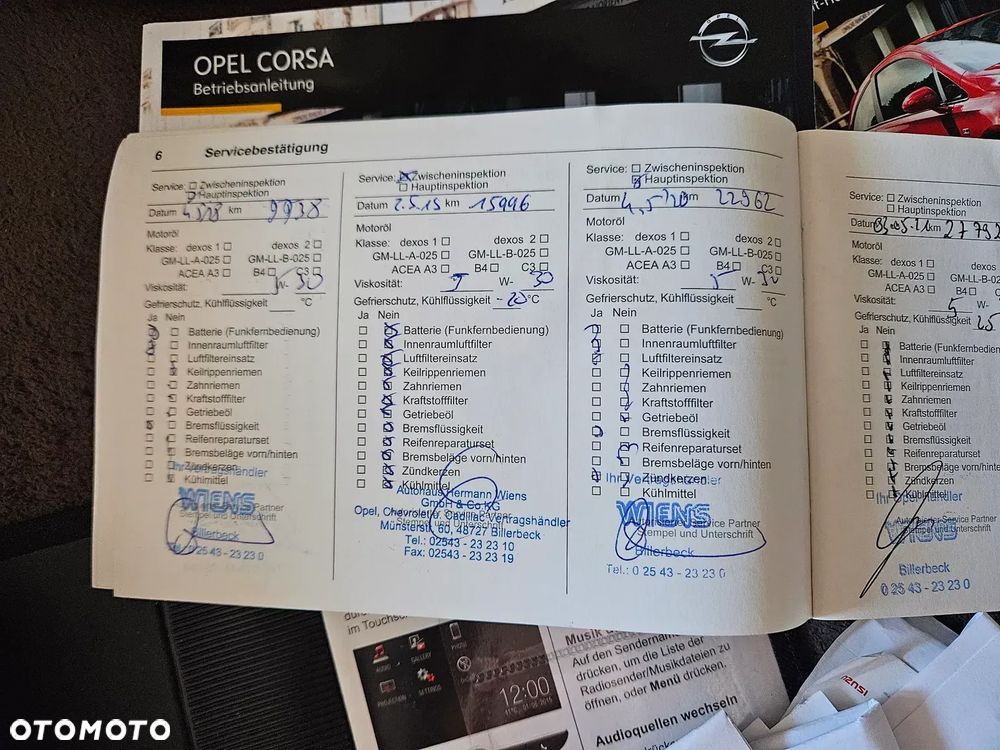 OPEL CORSA
Betriebsanleitung
OPEL
6 Servicebestätigung
Service: Zwischeninspektion
Hauptinspektion
Datum km 9938
Motoröl
Klasse: dexos 1 dexos 2
GM-LL-A-025 GM-LL-B-025
ACEA A3 B4 C3
Viskosität: 5 W- 30
Gefrierschutz, Kühlflüssigkeit °C
Ja Nein
Batterie (Funkfernbedienung)
Innenraumluftfilter
Luftfiltereinsatz
Keilrippenriemen
Zahnriemen
Kraftstofffilter
Getriebeöl
Bremsflüssigkeit
Reifenreparaturset
Bremsbeläge vorn/hinten
Zündkerzen
Ihr Vertragshändler
WIENS
Stempel und Unterschrift
Billerbeck
Tel.: 0 25 43 - 23 23 0
Service: Zwischeninspektion
Hauptinspektion
Datum km 15996
Motoröl
Klasse: dexos 1 dexos 2
GM-LL-A-025 GM-LL-B-025
ACEA A3 B4 C3
Viskosität: 5 W- 30
Gefrierschutz, Kühlflüssigkeit -20 °C
Ja Nein
Batterie (Funkfernbedienung)
Innenraumluftfilter
Luftfiltereinsatz
Keilrippenriemen
Zahnriemen
Kraftstofffilter
Getriebeöl
Bremsflüssigkeit
Reifenreparaturset
Bremsbeläge vorn/hinten
Zündkerzen
Kühlmittel
Autohaus Hermann Wiens
GmbH & Co.KG
Opel, Chevrolet u. Cadillac Vertragshändler
Stempel und Unterschrift
Münsterstr. 60, 48727 Billerbeck
Tel.: 02543 - 23 23 10
Fax: 02543 - 23 23 19
Service: Zwischeninspektion
Hauptinspektion
Datum 4.5.20 km 22962
Motoröl
Klasse: dexos 1 dexos 2
GM-LL-A-025 GM-LL-B-025
ACEA A3 B4 C3
Viskosität: 5 W- 30
Gefrierschutz, Kühlflüssigkeit °C
Ja Nein
Batterie (Funkfernbedienung)
Innenraumluftfilter
Luftfiltereinsatz
Keilrippenriemen
Zahnriemen
Kraftstofffilter
Getriebeöl
Bremsflüssigkeit
Reifenreparaturset
Bremsbeläge vorn/hinten
Zündkerzen
Kühlmittel
Ihr Vertragshändler
WIENS
Autorisierter Service Partner
Stempel und Unterschrift
Billerbeck
Tel.: 0 25 43 - 23 23 0
Service: Zwischeninspektion
Hauptinspektion
Datum km
Motoröl
Klasse: dexos 1
GM-LL-A-025 GM-LL-B-02
ACEA A3 B4
Viskosität: 5 W-
Gefrierschutz, Kühlflüssigkeit 25
Ja Nein
Batterie (Funkfernbedien
Innenraumluftfilter
Luftfiltereinsatz
Keilrippenriemen
Zahnriemen
Kraftstofffilter
Getriebeöl
Bremsflüssigkeit
Reifenreparaturset
Bremsbeläge vorn/hinten
Zündkerzen
Kühlmittel
Autorisierter Service Partner
Stempel und Unterschrift
WIENS
Billerbeck
0 25 43 - 23 23 0
im Touchs
AUDIO
GALLERY
PHONE
PROJECTION
SETTINGS
12:00
Musik
Auf den Sendername
drücken, um die Liste der
Radiosender/Musikdateien zu
öffnen, oder Menü drücken.
Audioquellen wechseln
OTOMOTO